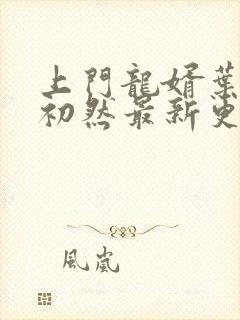 上門龍婿葉
初然最新更
風嵐